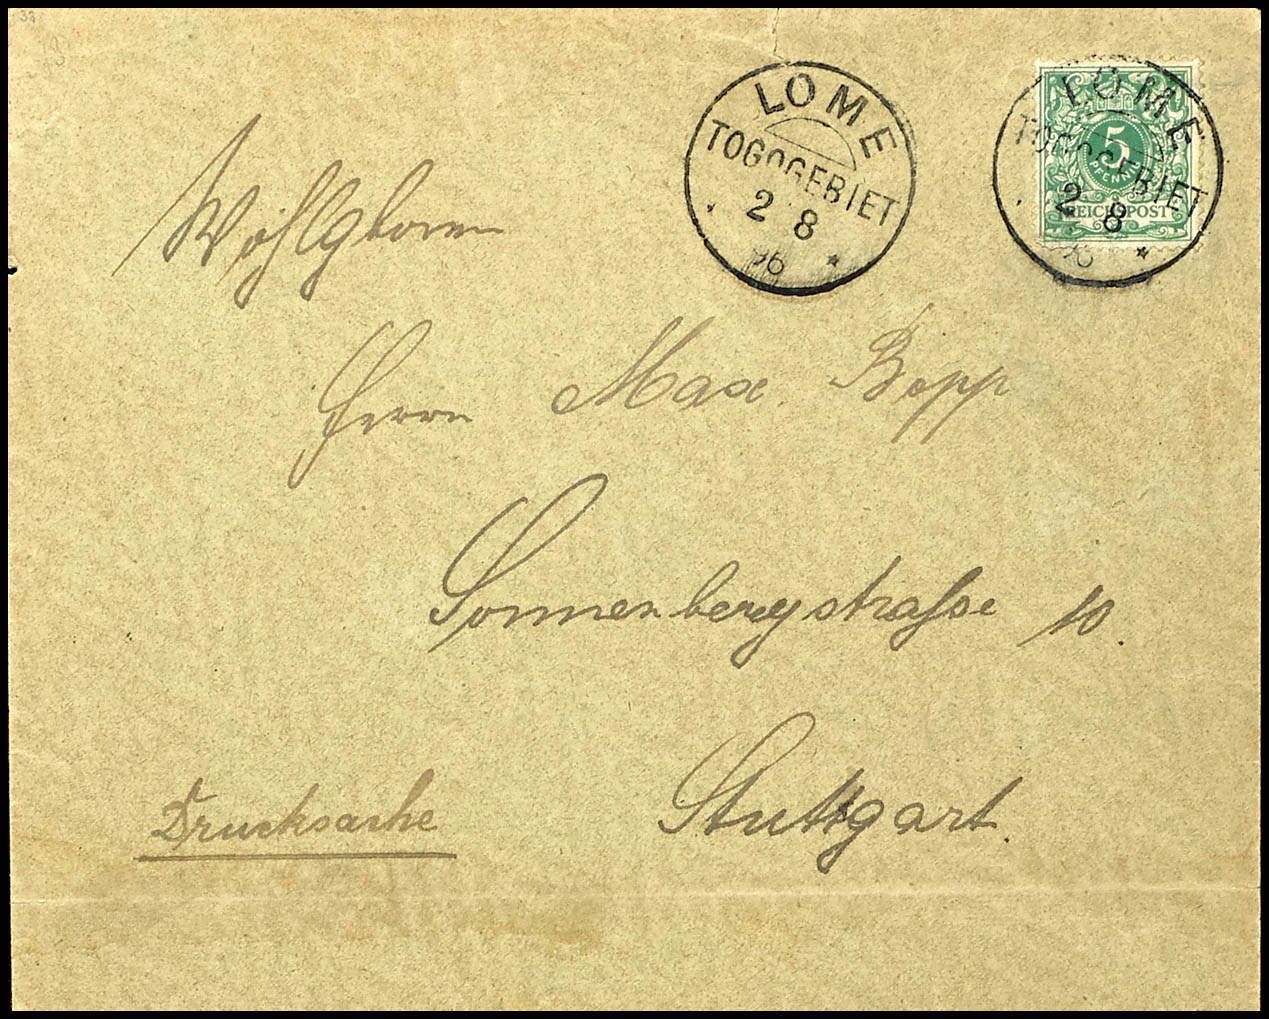 LOME
TOGOGEBIET
2 8
96
*
LOME
TOGOGEBIET
2 8
96
*
5
PFENNIG
REICHSPOST
Wohlgboren
Herrn Max Bopp
Sonnenbergstrasse 10.
Stuttgart.
Drucksache